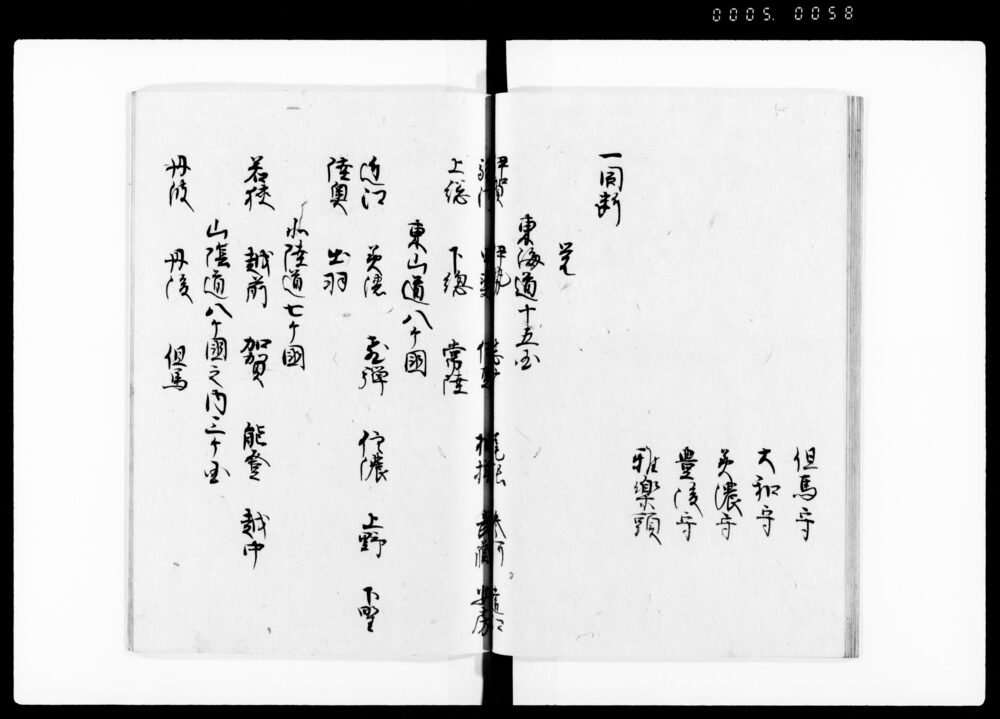 0005. 0058
但馬守
大和守
美濃守
豊後守
雅楽頭
一同断
覚
東海道十五国
伊賀 伊勢 尾張 参河
駿河 甲斐 相模 武蔵 安房
上総 下総 常陸
東山道八ケ國
近江 美濃 飛弾 信濃 上野 下野
陸奥 出羽
北陸道七ケ國
若狭 越前 加賀 能登 越中
山陰道八ケ國之内三ケ国
丹波 丹後 但馬